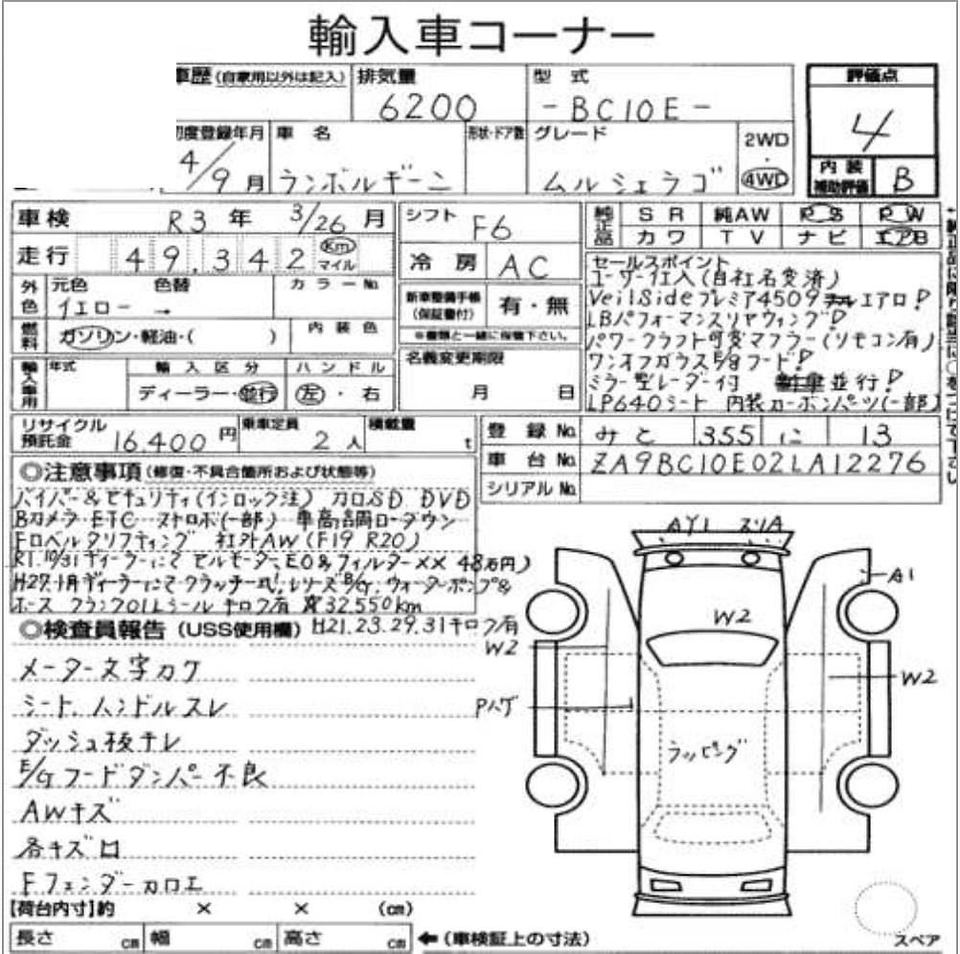 輸入車コーナー
車歴(自家用以外は記入) 排気量 型 式 評価点
6200 -BC10E- 4
初度登録年月 車 名 形状・ドア数 グレード 2WD・4WD
4/9月 ランボルギーニ ムルシェラゴ
内装補助評価 B
車検 R3 年 3/26 月 シフト F6
走行 49,342 Km マイル 冷 房 AC
純正品 S R 純AW P S P W
カワ T V ナビ エアB
外色 元色 色替 カラーNo.
イエロー →
新車整備手帳(保証書付) 有・無
※書類と一緒に保管下さい。
燃料 ガソリン・軽油・( ) 内装色
輸入車用 年式 輸入区分 ハンドル
ディーラー・並行 左・右
名義変更期限
月 日
セールスポイント
ユーザー仕入(自社名変済)
VeilSideプレミア4509 エアロ!
LBパフォーマンスリヤウィング!
パワークラフト可変マフラー(リモコン有)
ワンオフガラスE/gフード!
ミラー型レーダー付 並行!
LP640シート 内装カーボンパーツ(一部)
リサイクル預託金 16,400 円 乗車定員 2 人 積載量 t
登録No. みと 355 に 13
車台No. ZA9BC10E02LA12276
シリアルNo.
◎注意事項(修復・不具合箇所および状態等)
バイパー&セキュリティ(インロック注) カロSD DVD
Bカメラ ETC ストロボ(一部) 車高調ローダウン
Fロベルタリフティング 社外AW(F19 R20)
R1.10/31 ディーラーにてセルモーター、EO&フィルター×× 48万円)
H27.1月ディーラーにてクラッチ一式!レリーズB/G.ウォーターポンプ&
ホース クランクOILシール キロク有 實32,550km
◎検査員報告(USS使用欄) H21.23.29.31キロク有
メーター文字カケ
シート、ハンドルスレ
ダッシュ板キレ
E/Gフードダンパー不良
AWキズ
各キズ凹
Fフェンダーカロエ
AY1 スリA
A1
W2
W2
W2
Pハゲ
ラッピング
【荷台内寸】約 × × (cm)
長さ cm 幅 cm 高さ cm ←(車検証上の寸法)
スペア